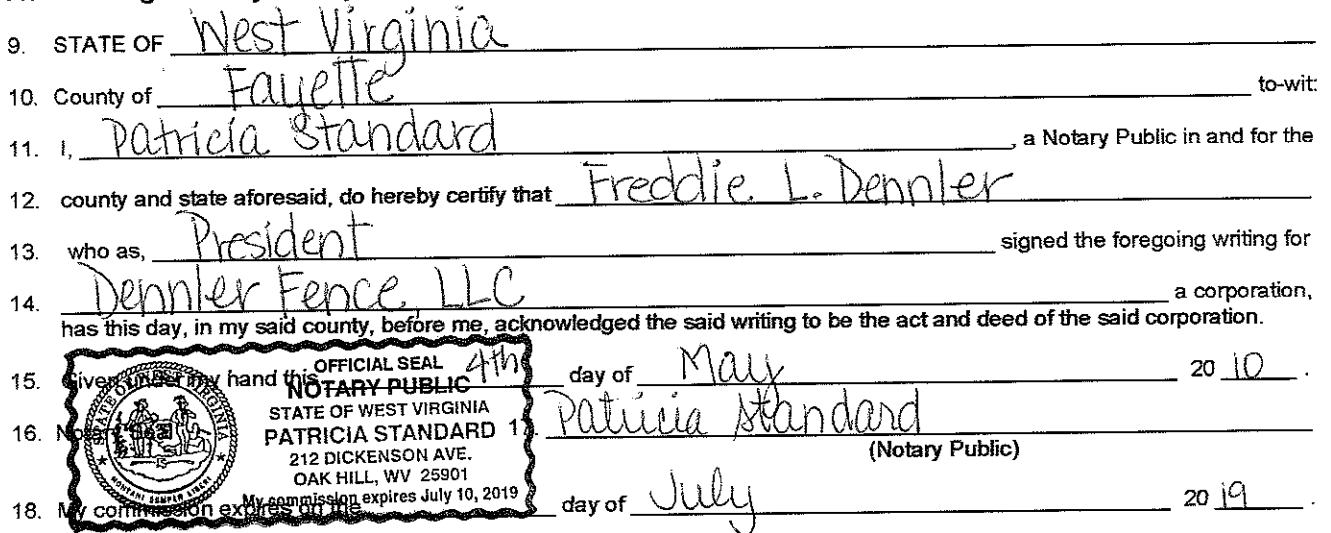 9. STATE OF West Virginia
10. County of Fayette to-wit:
11. I, Patricia Standard, a Notary Public in and for the
12. county and state aforesaid, do hereby certify that Freddie. L. Dennler
13. who as, President signed the foregoing writing for
14. Dennler Fence LLC a corporation,
has this day, in my said county, before me, acknowledged the said writing to be the act and deed of the said corporation.
15. Given under my hand this 4th day of May 20 10.
OFFICIAL SEAL
NOTARY PUBLIC
STATE OF WEST VIRGINIA
PATRICIA STANDARD
212 DICKENSON AVE.
OAK HILL, WV 25901
My commission expires July 10, 2019
STATE OF WEST VIRGINIA
MONTANI SEMPER LIBERI
16. Notary Seal 17. Patricia Standard
(Notary Public)
18. My commission expires on the day of July 20 19.